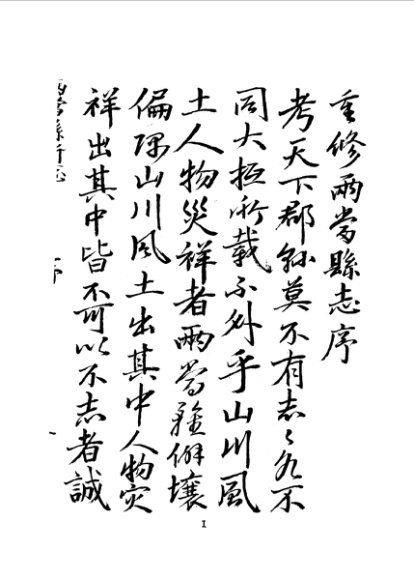 重修兩當縣志序
考天下郡縣莫不有志〻各不
同大抵所載不外乎山川風
土人物災祥者兩當雖僻壤
偏隅山川風土出其中人物灾
祥出其中皆不可以不志者誠
兩當縣新志
序
1